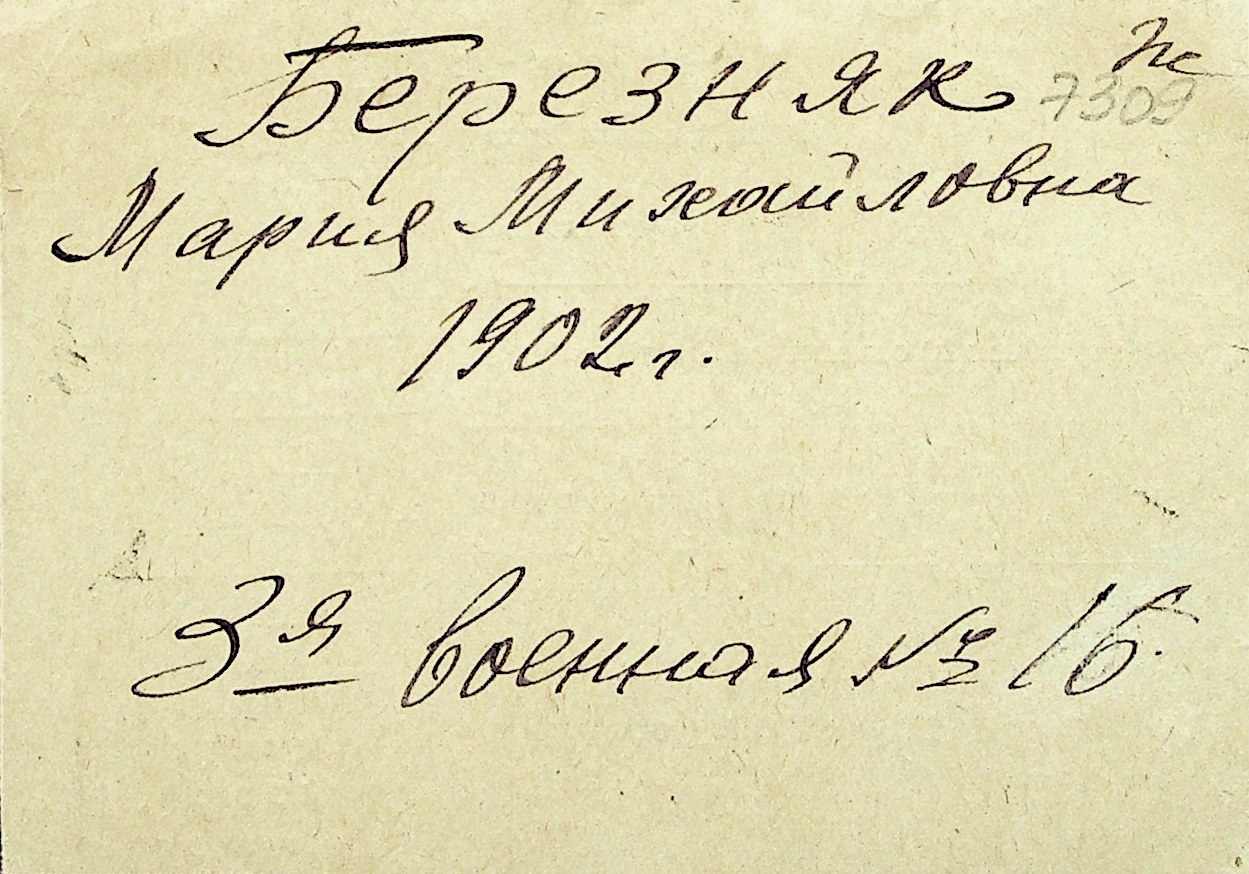 Березняк
7309
Мария Михайловна
1902 г.
3я военная № 16.